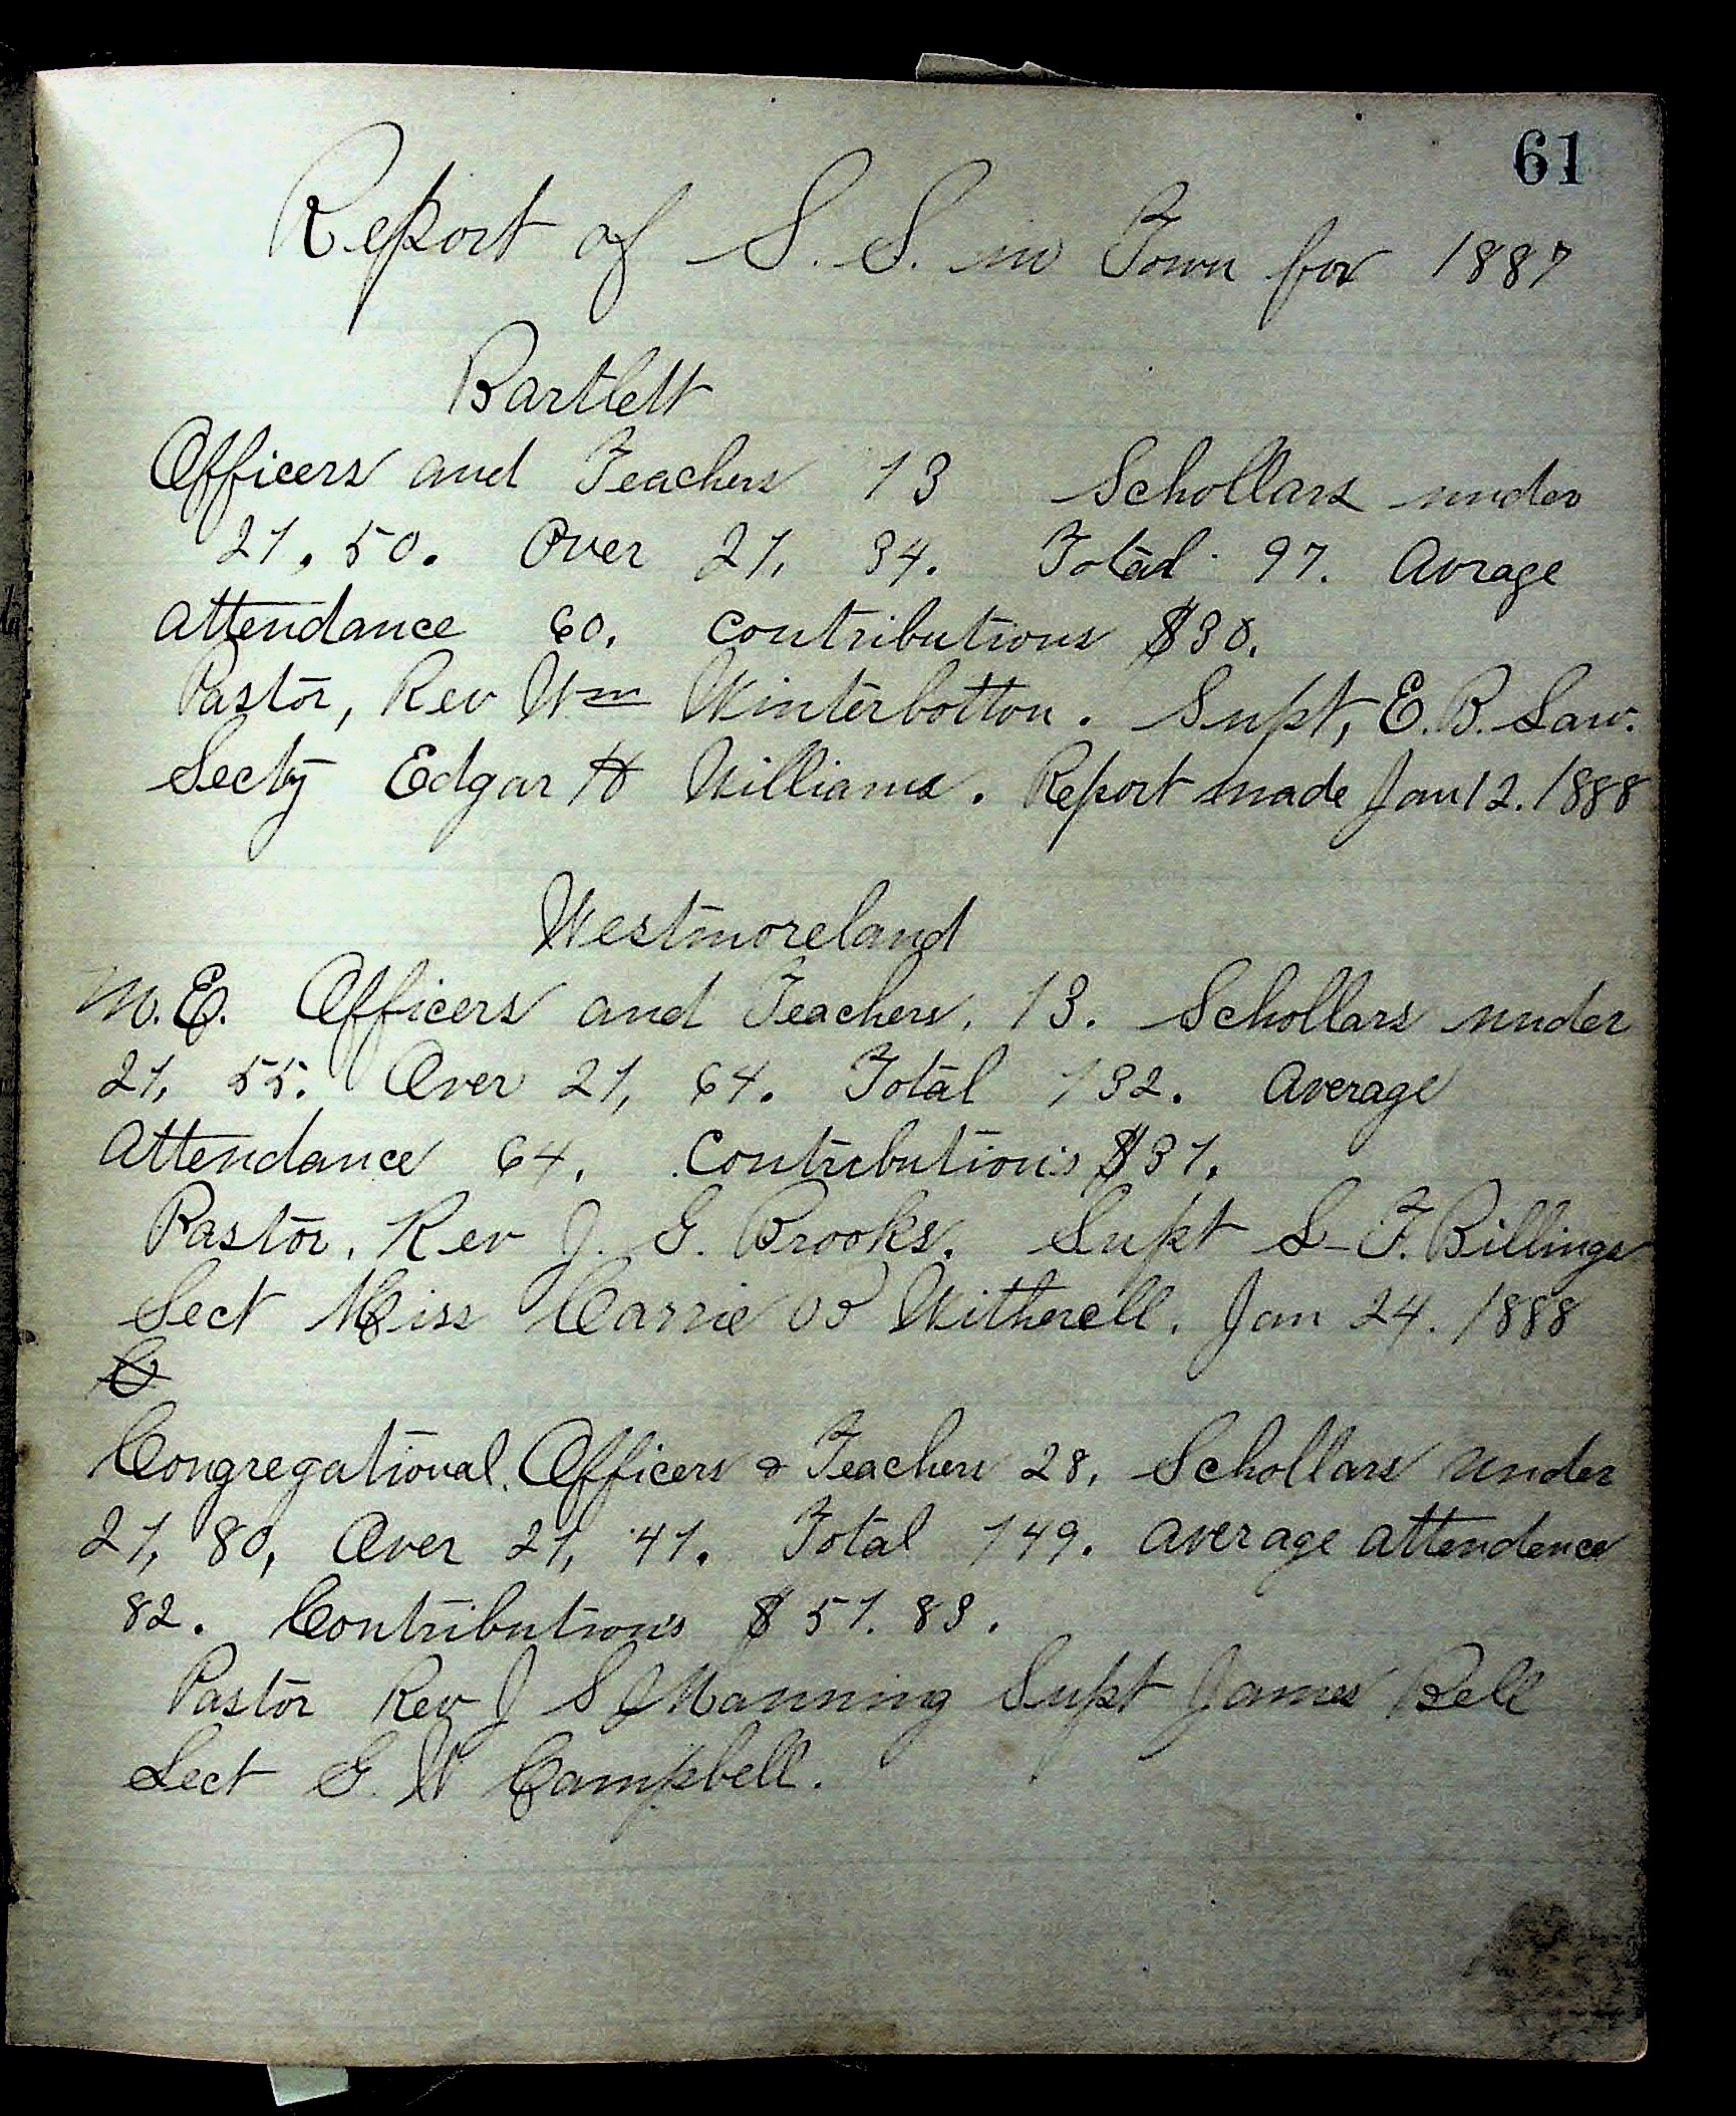 61
Report of S. S. in Town for 1887
Bartlett
Officers and Teachers 13 Schollars under
21, 50. Over 21, 34. Total 97. Avrage
attendance 60. Contributions $30.
Pastor, Rev Wm Winterbotton. Supt, E. B. Law.
Secty Edgar H Williams. Report made Jan 12. 1888
Westmoreland
M.E. Officers and Teachers, 13. Schollars under
21, 55. Over 21, 64. Total 132. Average
Attendance 64. Contributions $31.
Pastor, Rev J. G. Brooks. Supt L. F. Billings
Sect Miss Carrie Witherell. Jan 24. 1888
C
Congregational. Officers & Teachers 28, Schollars under
21, 80, Over 21, 41. Total 149. average attendence
82. Contributions $51.83.
Pastor Rev J S Manning Supt James Bell
Sect G. W Campbell.